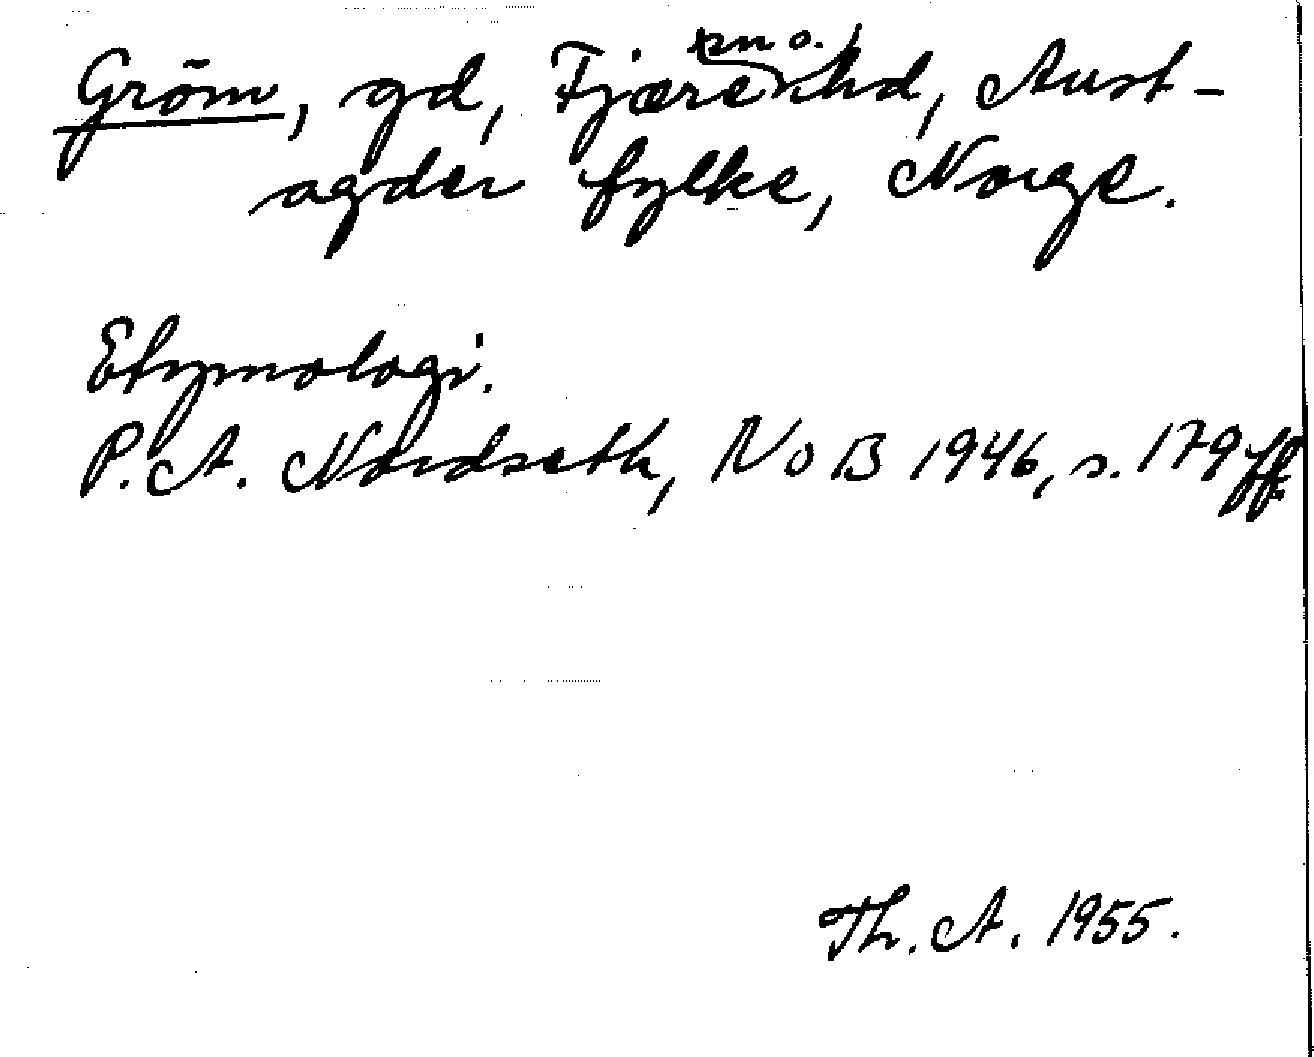 Gröm, gd, Fjære sn o. hd, Aust-
agder fylke, Norge.
Etymologi.
P. A. Nordseth, NoB 1946, s. 179 ff.
Th. A. 1955.